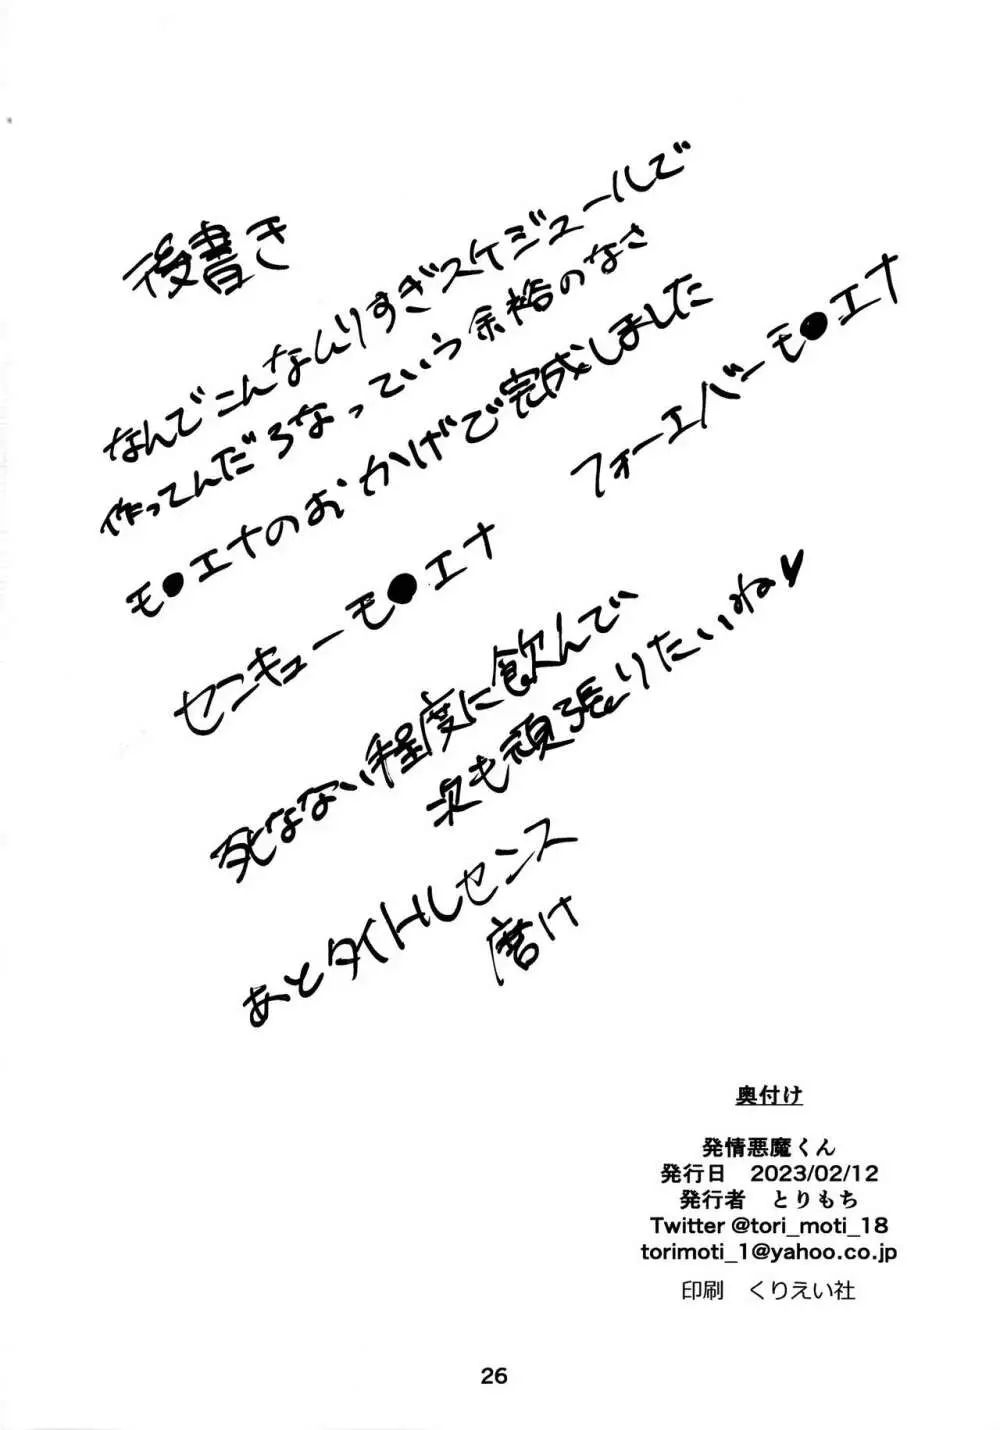 後書き
なんでこんなムリすぎスケジュールで
作ってんだろなっていう余裕のなさ
モ●エナのおかげで完成しました
フォーエバーモ●エナ
センキューモ●エナ
死なない程度に飲んで
次も頑張りたいね♥
あとタイトルセンス
磨け
奥付け
発情悪魔くん
発行日 2023/02/12
発行者 とりもち
Twitter @tori_moti_18
torimoti_1@yahoo.co.jp
印刷 くりえい社
26